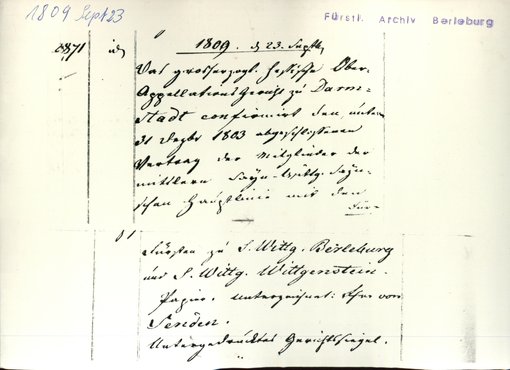 1809 Sept 23
Fürstl. Archiv Berleburg
1809. d 23. Septb.
Das grosherzogl. hessische Ober-
Appellations Gericht zu Darm-
stadt confirmirt den unterm
31 Dezbr 1803 abgeschlossenen
Vertrag der Mitglieder der
mittlern Sayn-Wittg. Sayn-
schen Hauptlinie mit den
Für-
Fürsten zu S. Wittg. Berleburg
und S. Wittg. Wittgenstein.
Papier. Unterzeichnet: von
Senden.
Untergedrucktes Gerichtssiegel.